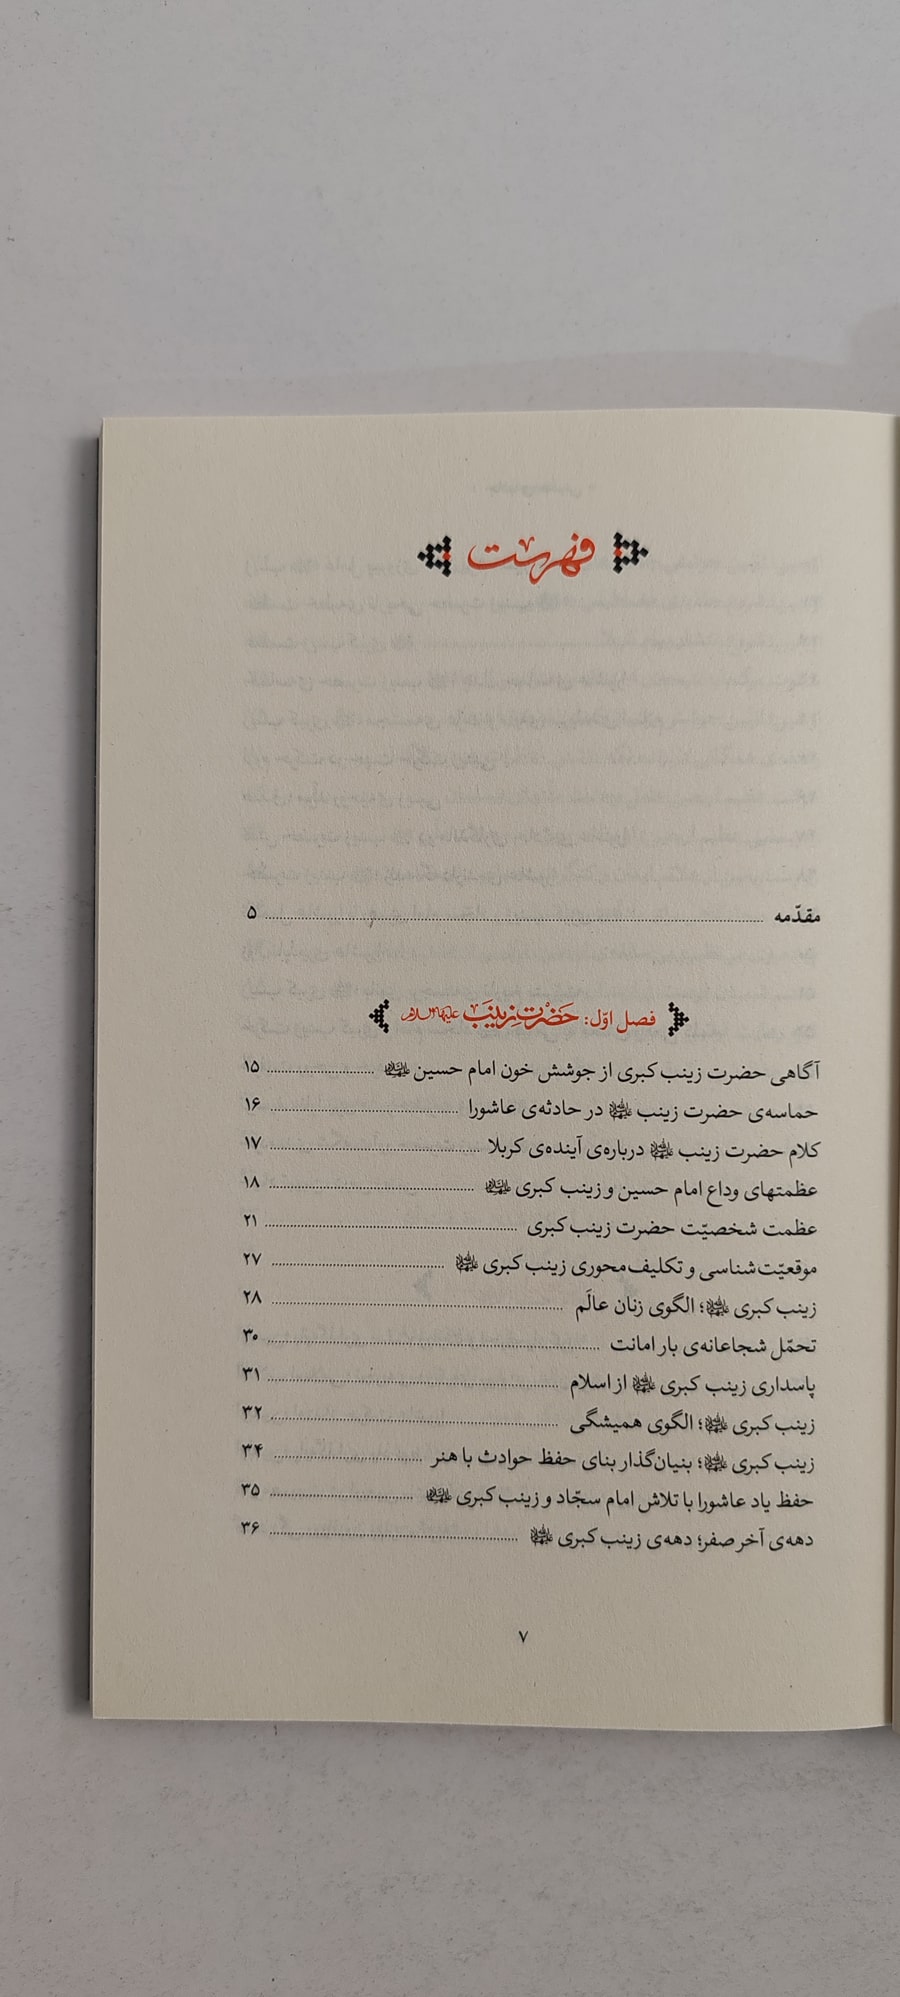 فهرست
مقدّمه ۵
فصل اوّل: حَضْرَت زینَب علیهاالسلام
آگاهی حضرت زینب کبری از جوشش خون امام حسین ۱۵
حماسه‌ی حضرت زینب در حادثه‌ی عاشورا ۱۶
کلام حضرت زینب درباره‌ی آینده‌ی کربلا ۱۷
عظمتهای وداع امام حسین و زینب کبری ۱۸
عظمت شخصیّت حضرت زینب کبری ۲۱
موقعیّت‌شناسی و تکلیف‌محوری زینب کبری ۲۷
زینب کبری ؛ الگوی زنان عالَم ۲۸
تحمّل شجاعانه‌ی بار امانت ۳۰
پاسداری زینب کبری از اسلام ۳۱
زینب کبری ؛ الگوی همیشگی ۳۲
زینب کبری ؛ بنیان‌گذار بنای حفظ حوادث با هنر ۳۴
حفظ یاد عاشورا با تلاش امام سجّاد و زینب کبری ۳۵
دهه‌ی آخر صفر؛ دهه‌ی زینب کبری ۳۶
۷